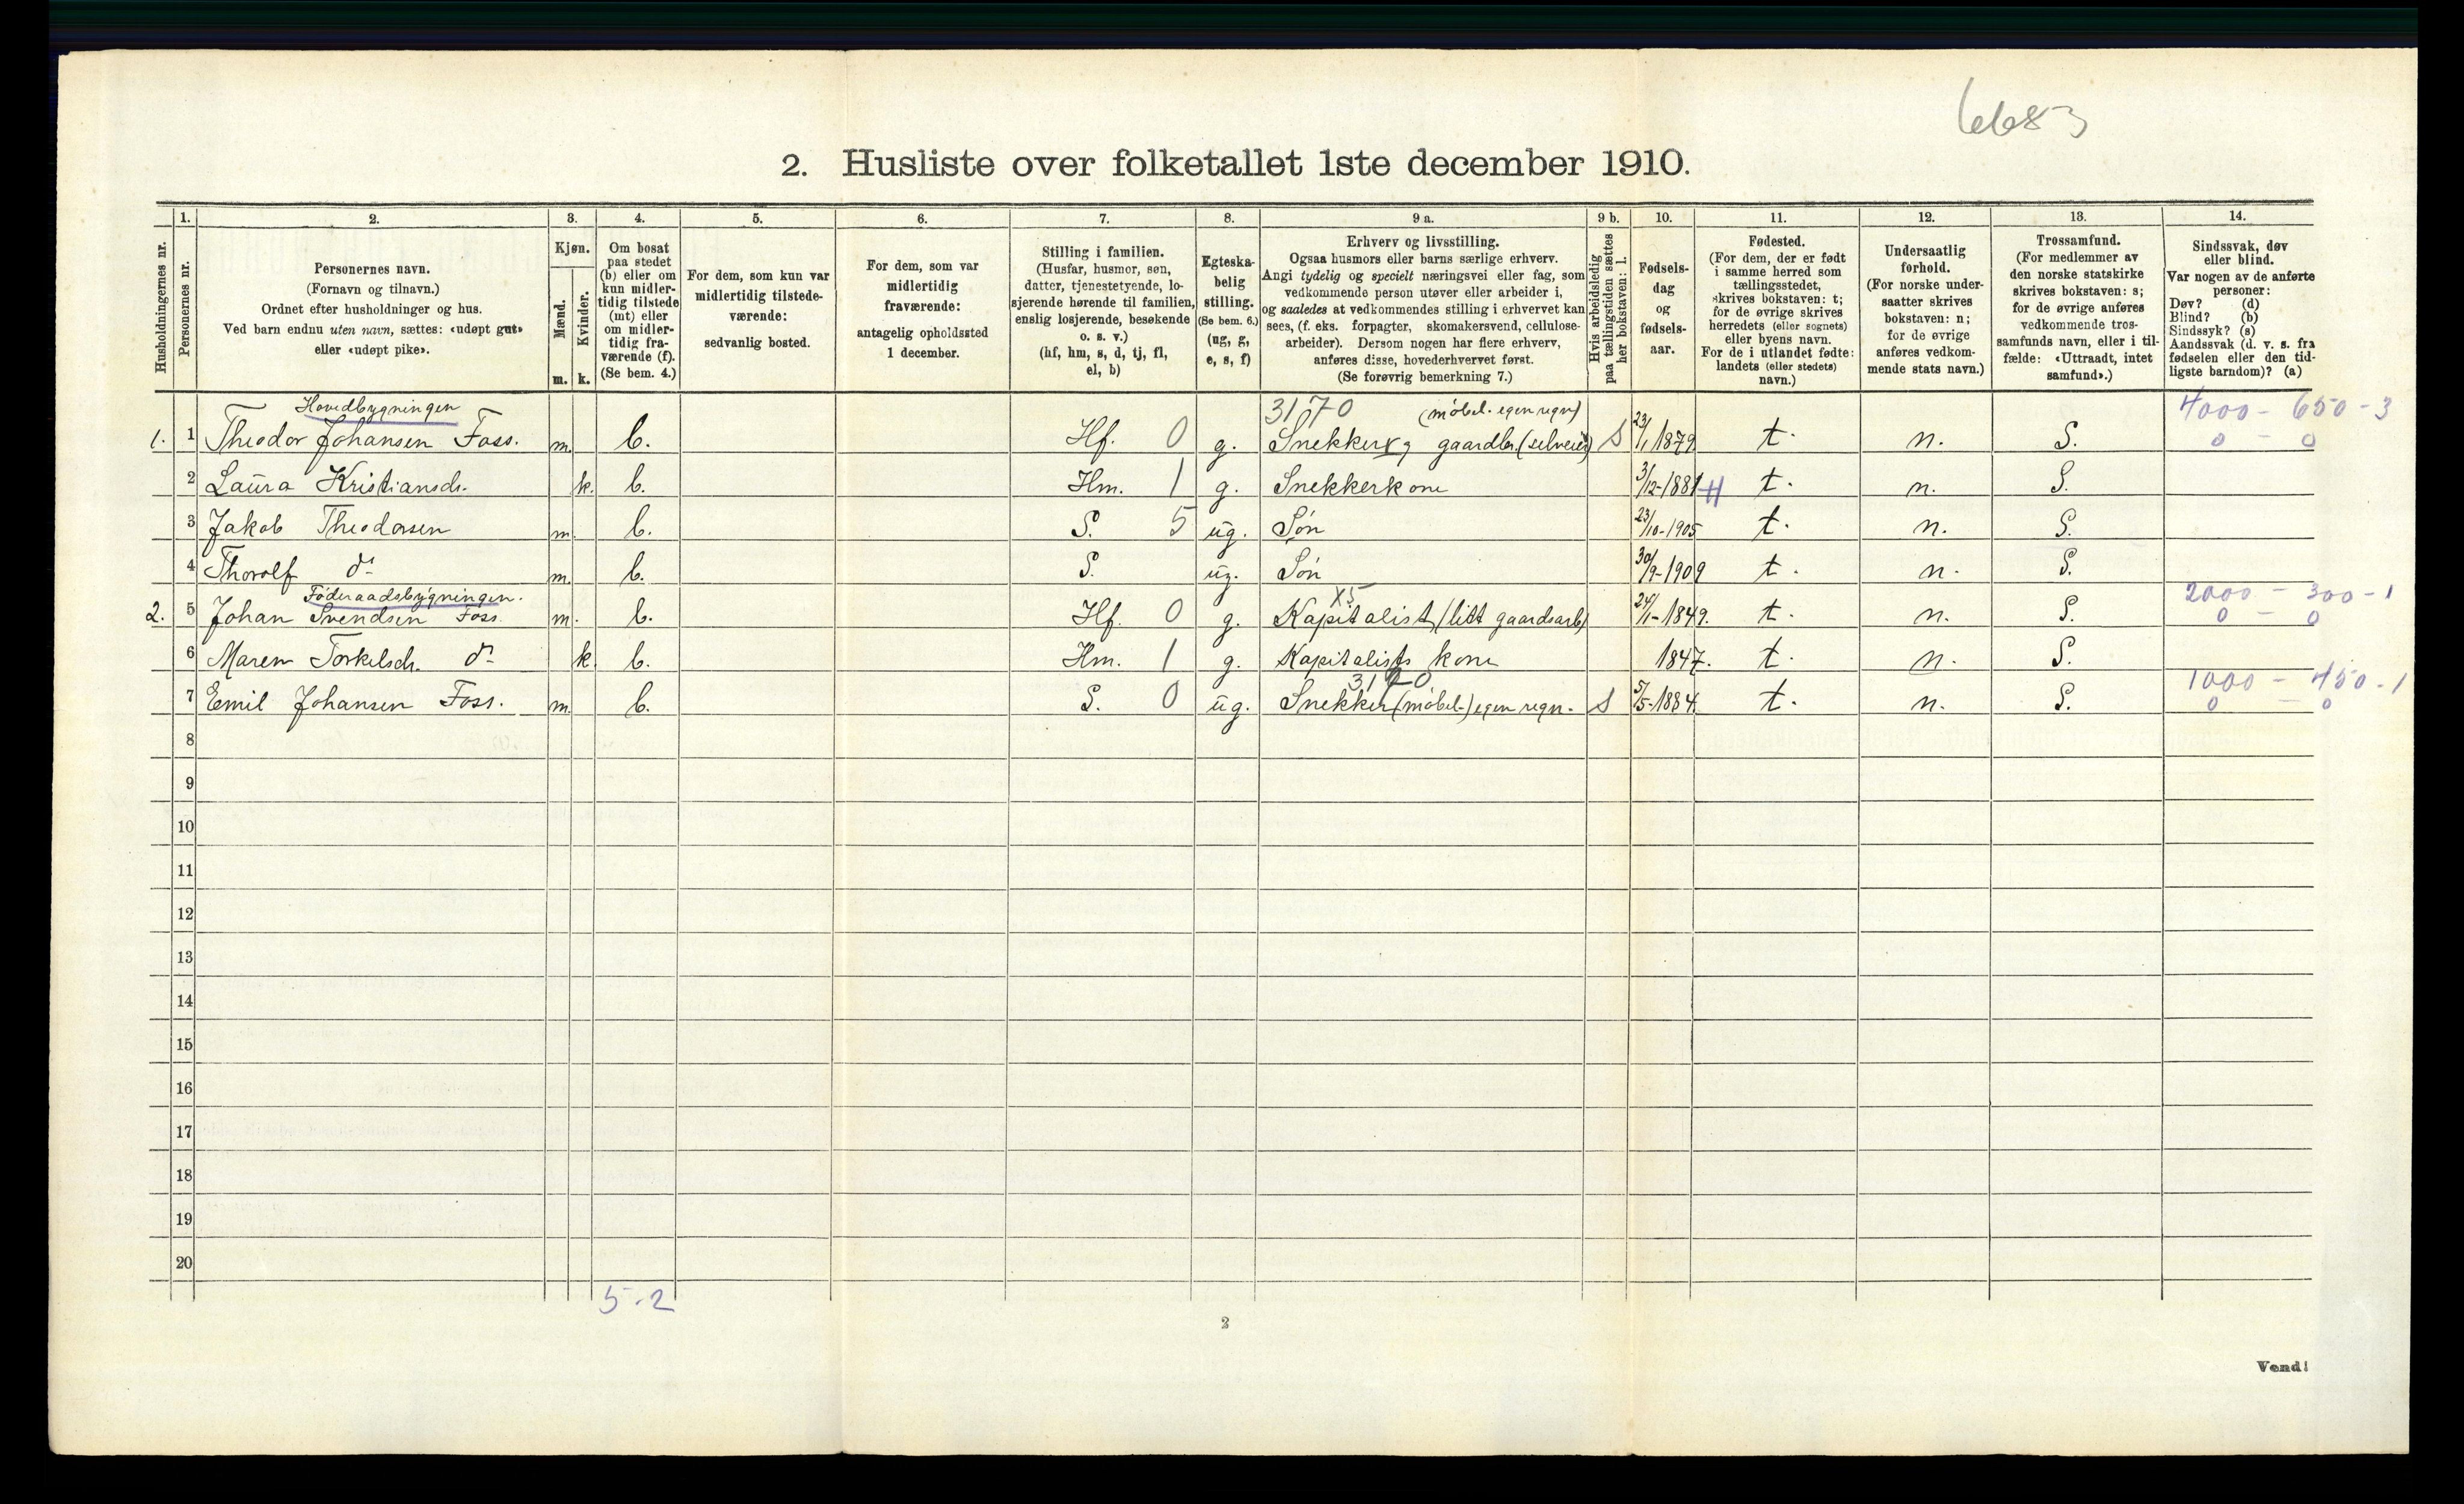 6683
2. Husliste over folketallet 1ste december 1910.
Husholdningernes nr.
1.
Personernes nr.
2.
Personernes navn.
(Fornavn og tilnavn.)
Ordnet efter husholdninger og hus.
Ved barn endnu uten navn, sættes: «udøpt gut»
eller «udøpt pike».
3.
Kjøn.
Mænd.
Kvinder.
m. k.
4.
Om bosat
paa stedet
(b) eller om
kun midler-
tidig tilstede
(mt) eller
om midler-
tidig fra-
værende (f).
(Se bem. 4.)
5.
For dem, som kun var
midlertidig tilstede-
værende:
sedvanlig bosted.
6.
For dem, som var
midlertidig
fraværende:
antagelig opholdssted
1 december.
7.
Stilling i familien.
(Husfar, husmor, søn,
datter, tjenestetyende, lo-
sjerende hørende til familien,
enslig losjerende, besøkende
o. s. v.)
(hf, hm, s, d, tj, fl,
el, b)
8.
Egteska-
belig
stilling.
(Se bem. 6.)
(ug, g,
e, s, f)
9 a.
Erhverv og livsstilling.
Ogsaa husmors eller barns særlige erhverv.
Angi tydelig og specielt næringsvei eller fag, som
vedkommende person utøver eller arbeider i,
og saaledes at vedkommendes stilling i erhvervet kan
sees, (f. eks. forpagter, skomakersvend, cellulose-
arbeider). Dersom nogen har flere erhverv,
anføres disse, hovederhvervet først.
(Se forøvrig bemerkning 7.)
9 b.
Hvis arbeidsledig
paa tællingstiden sættes
her bokstaven: l.
10.
Fødsels-
dag
og
fødsels-
aar.
11.
Fødested.
(For dem, der er født
i samme herred som
tællingsstedet,
skrives bokstaven: t;
for de øvrige skrives
herredets (eller sognets)
eller byens navn.
For de i utlandet fødte:
landets (eller stedets)
navn.)
12.
Undersaatlig
forhold.
(For norske under-
saatter skrives
bokstaven: n;
for de øvrige
anføres vedkom-
mende stats navn.)
13.
Trossamfund.
(For medlemmer av
den norske statskirke
skrives bokstaven: s;
for de øvrige anføres
vedkommende tros-
samfunds navn, eller i til-
fælde: «Uttraadt, intet
samfund».)
14.
Sindssvak, døv
eller blind.
Var nogen av de anførte
personer:
Døv? (d)
Blind? (b)
Sindssyk? (s)
Aandssvak (d. v. s. fra
fødselen eller den tid-
ligste barndom)? (a)
Hovedbygningen 3170 (møbel. egen regn) 4000 - 650 - 3
1. 1 Theodor Johansen Foss. m. b. Hf. 0 g. Snekker og gaardbr. (selveier) S 23/1 1879 t. n. S. 0 - 0
2 Laura Kristiansdr. k. b. Hm. 1 g. Snekkerkone 3/12-1881 t. n. S.
3 Jakob Theodorsen m. b. S. 5 ug. Søn 23/10-1905 t. n. S.
4 Thorolf do m. b. S. ug. Søn 30/9-1909 t. n. S.
Föderaadsbygningen. X5 2000 - 300 - 1
2. 5 Johan Svendsen Foss m. b. Hf. 0 g. Kapitalist (litt gaardsarb) 24/1-1849. t. n. S. 0 - 0
6 Maren Torkelsdr. do k. b. Hm. 1 g. Kapitalists kone 1847. t. n. S.
3170 1000 - 450 - 1
7 Emil Johansen Foss. m. b. S. 0 ug. Snekker (møbel-) egen regn. S 5/5-1884. t. n. S. 0 - 0
8
9
10
11
12
13
14
15
16
17
18
19
20
5-2
2
Vend!